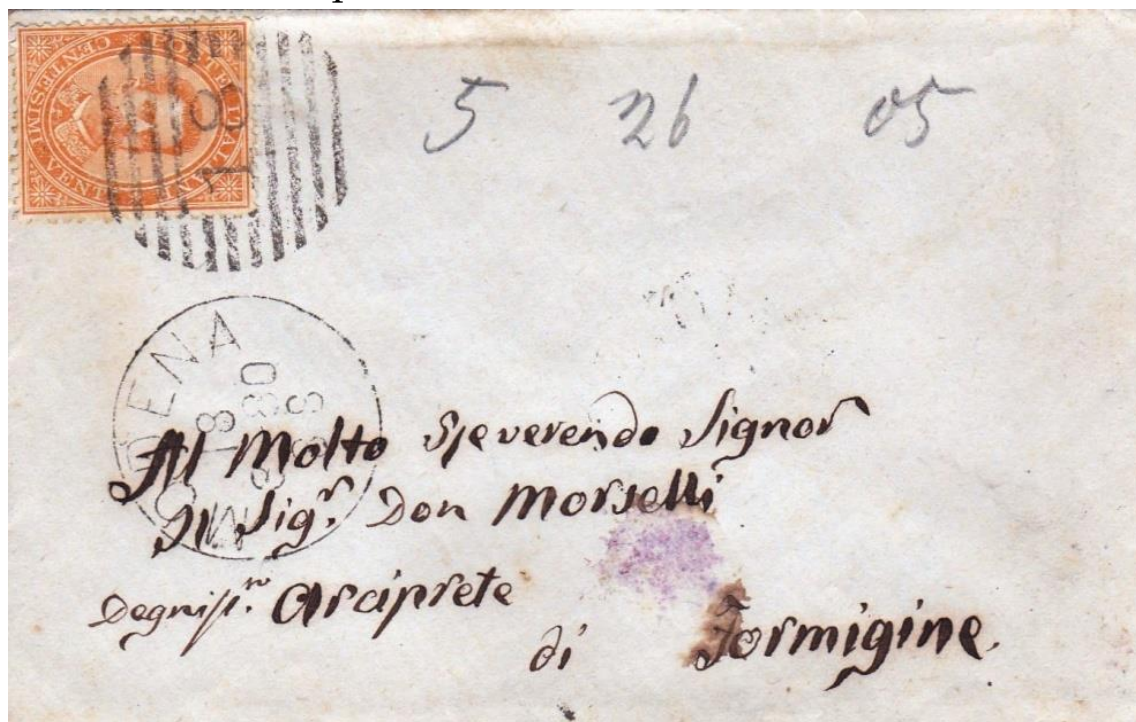 POSTE ITALIANE
CENTESIMI VENTI
5 26 05
MODENA
Al Molto Reverendo Signor
Il Sigr. Don Morselli
Degnissmo. Arciprete
di Formigine.